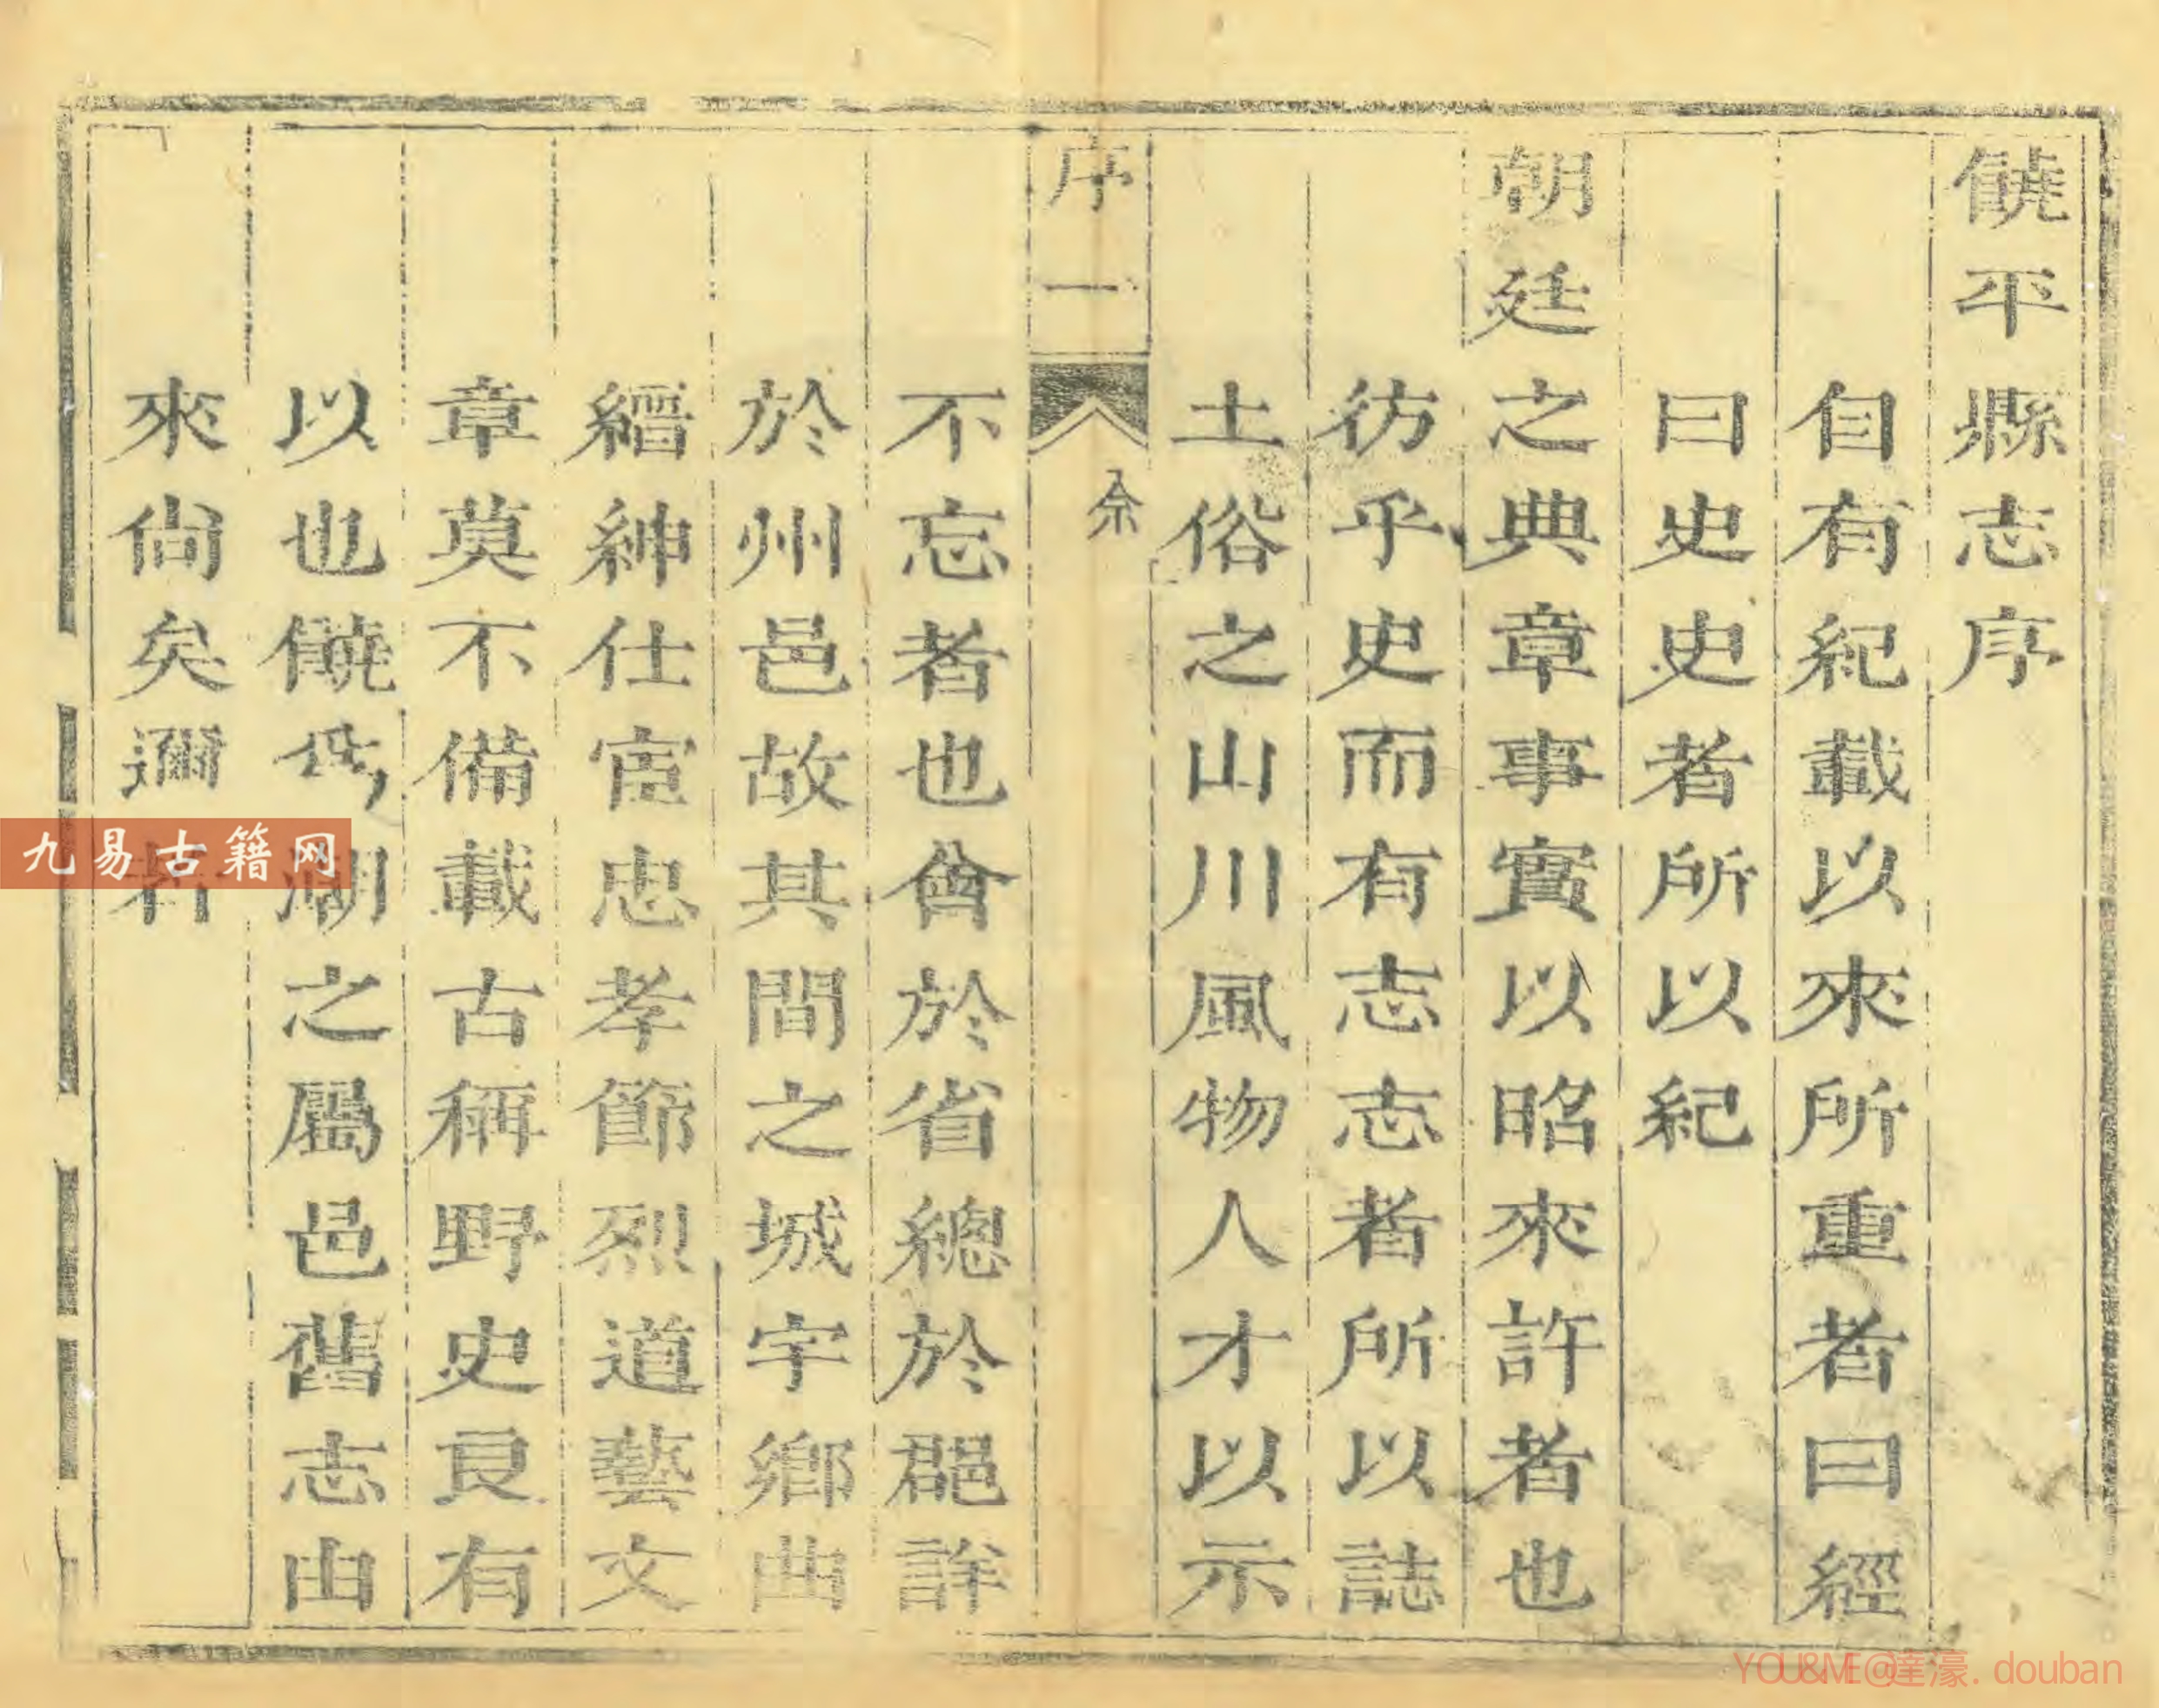 饒平縣志序
自有紀載以來所重者曰經
曰史史者所以紀
朝廷之典章事實以昭來許者也
彷乎史而有志志者所以誌
土俗之山川風物人才以示
序一
佘
不忘者也會於省總於郡詳
於州邑故其間之城宇鄉曲
縉紳仕宦忠孝節烈道藝文
章莫不備載古稱野史良有
以也饒為潮之屬邑舊志由
來尚矣邇者
九易古籍网
YOU&ME@達濠.douban